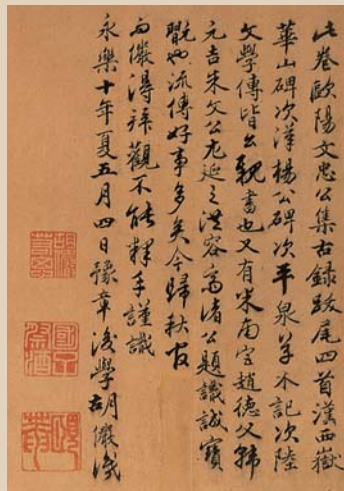 此卷歐陽文忠公集古錄跋尾四首漢西嶽
華山碑次漢楊公碑次平泉草木記次陸
文學傳皆公親書也又有米南宮趙德父韓
元吉朱文公尤延之洪容齋諸公題識誠寶
翫也流傳好事多矣今歸秋官
而儼得拜觀不能釋手謹識
永樂十年夏五月四日豫章後學胡儼識